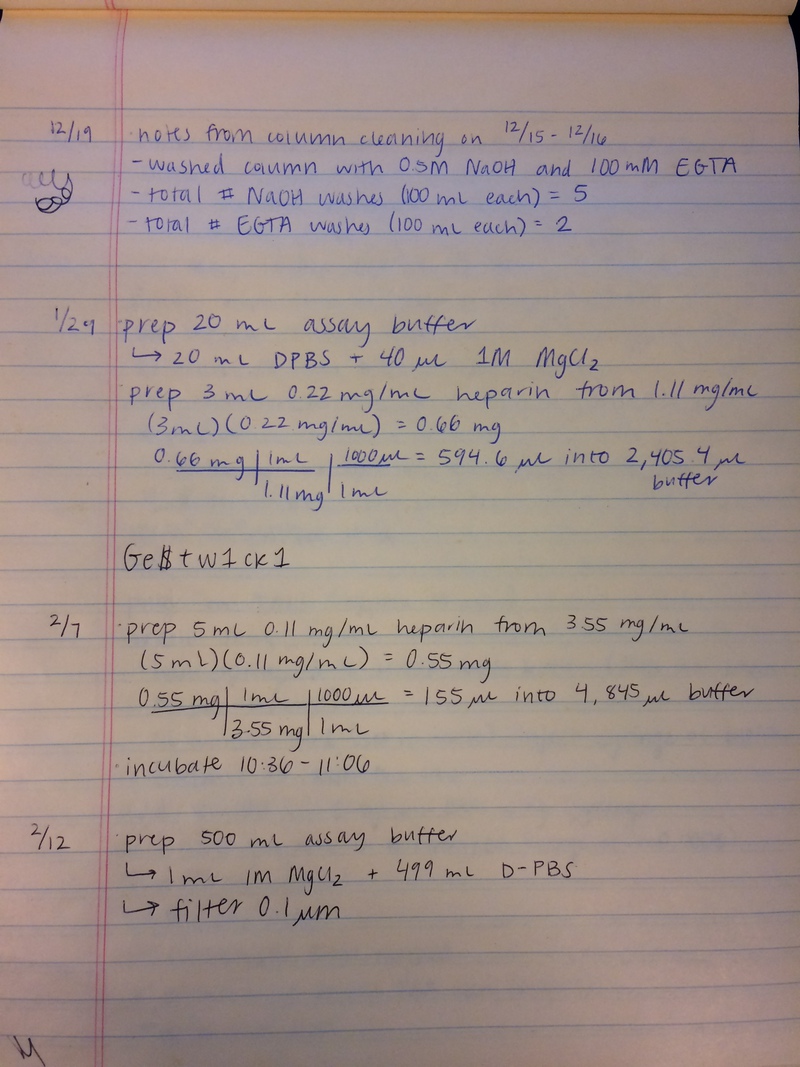 12/19 · notes from column cleaning on 12/15 - 12/16
- washed column with 0.5M NaOH and 100 mM EGTA
- total # NaOH washes (100 mL each) = 5
- total # EGTA washes (100 mL each) = 2
1/29 · prep 20 mL assay buffer
↳ 20 mL DPBS + 40 µL 1M MgCl2
· prep 3 mL 0.22 mg/mL heparin from 1.11 mg/mL
(3mL)(0.22 mg/mL) = 0.66 mg
0.66 mg | 1mL | 1000 µL = 594.6 µL into 2,405.4 µL
1.11 mg | 1mL buffer
Ge$tw1ck1
2/7 · prep 5 mL 0.11 mg/mL heparin from 3.55 mg/mL
(5 mL)(0.11 mg/mL) = 0.55 mg
0.55 mg | 1mL | 1000 µL = 155 µL into 4,845 µL buffer
3.55 mg | 1mL
· incubate 10:36 - 11:06
2/12 · prep 500 mL assay buffer
↳ 1 mL 1M MgCl2 + 499 mL D-PBS
↳ filter 0.1 µm